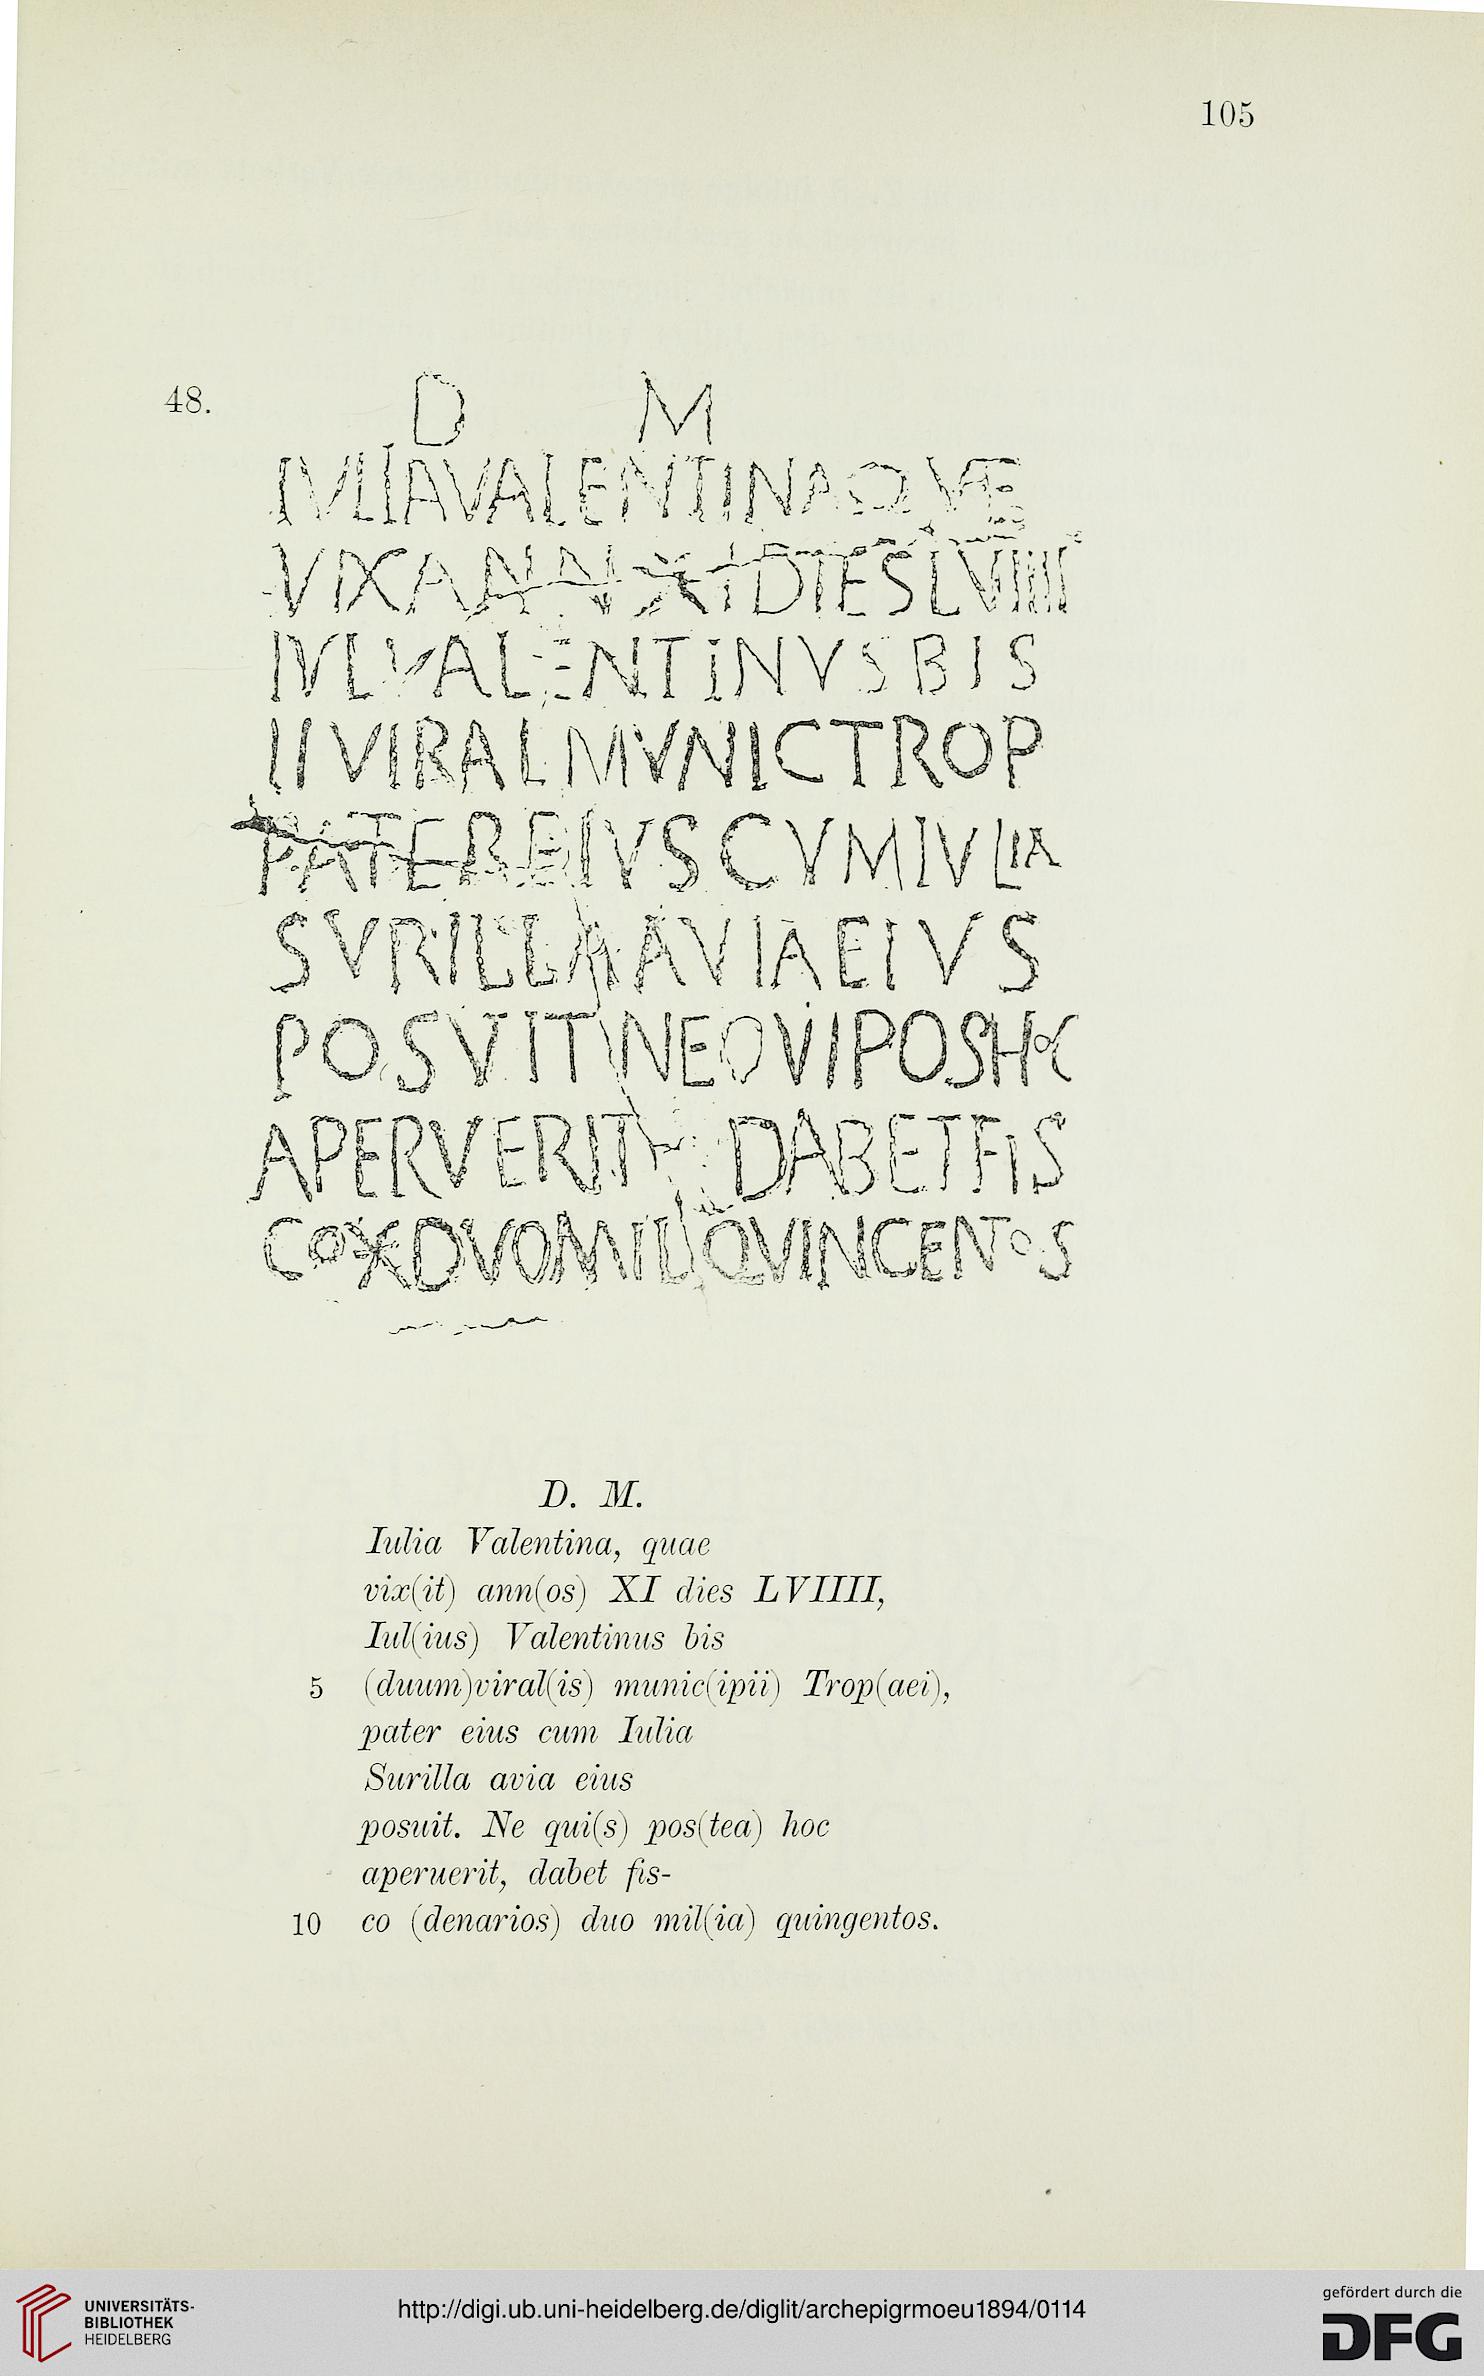 105
48.
D M
IVLIAVALENTINAQVE
VIXANNXIDIESLVIIII
IVLVALENTINVSBIS
IIVIRALMVNICTROP
PATEREIVSCVMIVLIA
SVRILLAAVIAEIVS
POSVITNEQVIPOSHOC
APERVERIT DABETFIS
COXDVOMILQVINGENTOS
D. M.
Iulia Valentina, quae
vix(it) ann(os) XI dies LVIIII,
Iul(ius) Valentinus bis
5 (duum)viral(is) munic(ipii) Trop(aei),
pater eius cum Iulia
Surilla avia eius
posuit. Ne qui(s) pos(tea) hoc
aperuerit, dabet fis-
10 co (denarios) duo mil(ia) quingentos.
UNIVERSITÄTS-
BIBLIOTHEK
HEIDELBERG
http://digi.ub.uni-heidelberg.de/diglit/archepigrmoeu1894/0114
gefördert durch die
DFG